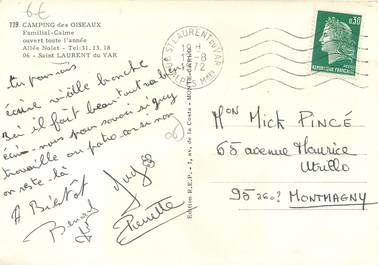 6€
119 CAMPING des OISEAUX
Familial-Calme
ouvert toute l'année
Allée Nolet - Tel:31.13.18
06 - Saint LAURENT du VAR
06 ST LAURENT DU VAR
1972
ALPES MMES
0,30
REPUBLIQUE FRANCAISE
POSTES
tu pourrais
écrire vieille branche
ici il fait beau tout va bien
écris-nous pour savoir si guy
travaille au patro si non
on reste là
A Bientôt
Bernard
Pierrette
Edition R.E.P. - 1, av. de la Costa - MONTE-CARLO
Mon Mick PINCÉ
65 avenue Maurice
Utrillo
95360? MONTMAGNY